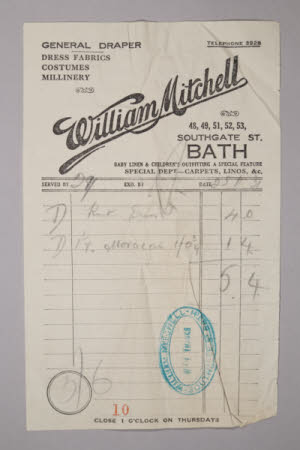 GENERAL DRAPER
TELEPHONE 5528
DRESS FABRICS
COSTUMES
MILLINERY
William Mitchell
48, 49, 51, 52, 53,
SOUTHGATE ST,
BATH
BABY LINEN & CHILDREN'S OUTFITTING A SPECIAL FEATURE
SPECIAL DEPT—CARPETS, LINOS, &c,
SERVED BY EXD. BY DATE
4 0
1 4
5 4
5/6
WILLIAM MITCHELL
10
CLOSE 1 O'CLOCK ON THURSDAYS